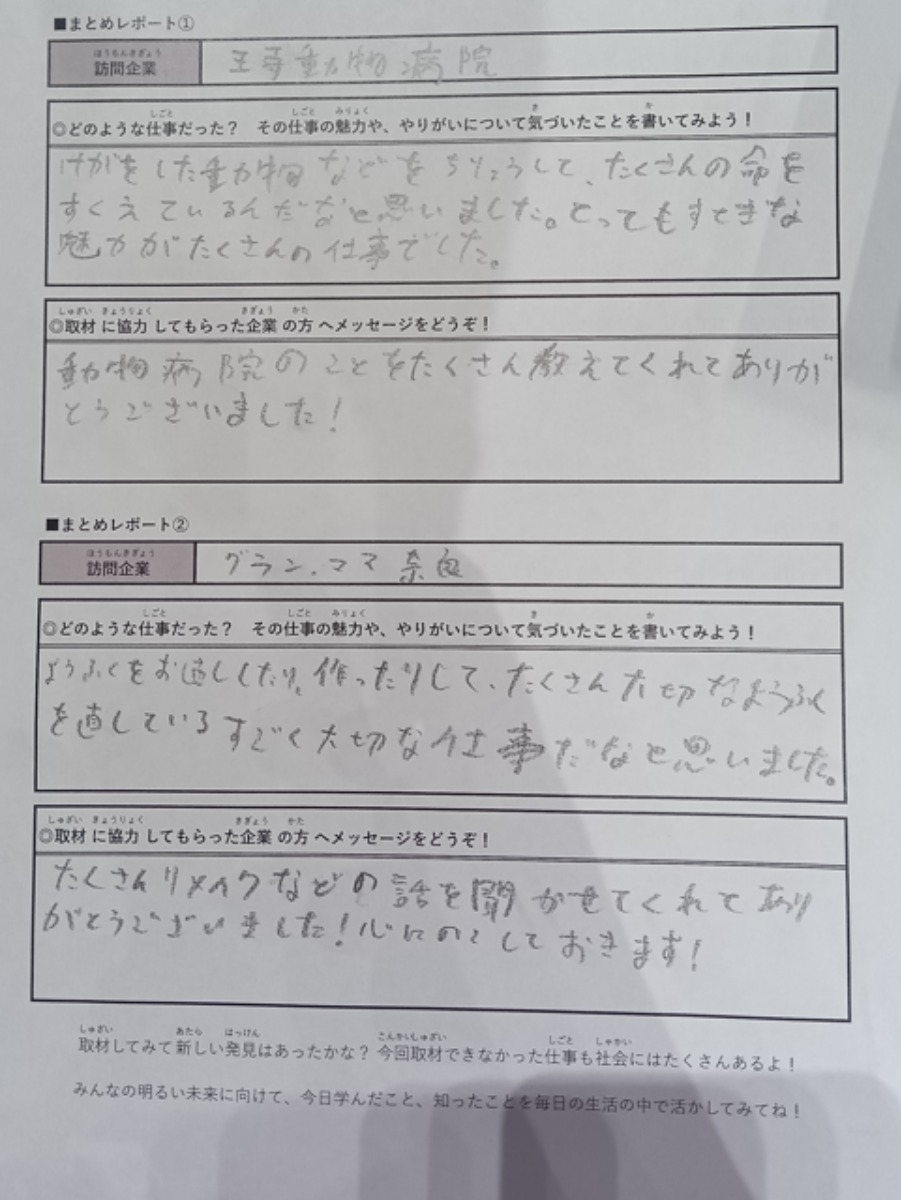 ■まとめレポート①
ほうもんきぎょう
訪問企業
王寺動物病院
しごと しごと みりょく き か
◎どのような仕事だった？ その仕事の魅力や、やりがいについて気づいたことを書いてみよう！
けがをした動物などをちりょうして、たくさんの命を
すくえているんだなと思いました。とってもすてきな
魅力がたくさんの仕事でした。
しゅざい きょうりょく きぎょう かた
◎取材に協力してもらった企業の方へメッセージをどうぞ！
動物病院のことをたくさん教えてくれてありが
とうございました！
■まとめレポート②
ほうもんきぎょう
訪問企業
グラン.ママ 奈良
しごと しごと みりょく き か
◎どのような仕事だった？ その仕事の魅力や、やりがいについて気づいたことを書いてみよう！
ようふくをお直ししたり、作ったりして、たくさん大切なようふく
を直しているすごく大切な仕事だなと思いました。
しゅざい きょうりょく きぎょう かた
◎取材に協力してもらった企業の方へメッセージをどうぞ！
たくさんリメイクなどの話を聞かせてくれてあり
がとうございました！心にのこしておきます！
しゅざい あたら はっけん こんかいしゅざい しごと しゃかい
取材してみて新しい発見はあったかな？今回取材できなかった仕事も社会にはたくさんあるよ！
みんなの明るい未来に向けて、今日学んだこと、知ったことを毎日の生活の中で活かしてみてね！